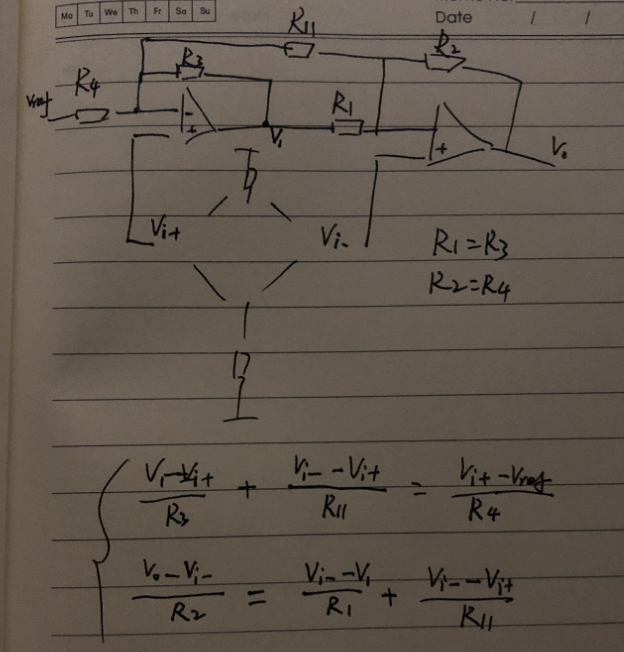 Mo Tu We Th Fr Sa Su
Date / /
R11
R3
R2
Vref R4
R1
V1
Vo
Vi+
Vi-
R1=R3
R2=R4
V1-Vi+/R3 + Vi--Vi+/R11 = Vi+-Vref/R4
Vo-Vi-/R2 = Vi--V1/R1 + Vi--Vi+/R11